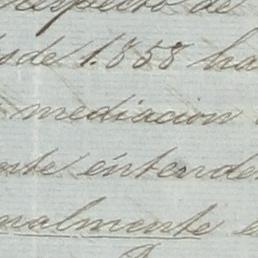 respecto de
desde 1.858 ha
mediacion
este enténde
nalmente e